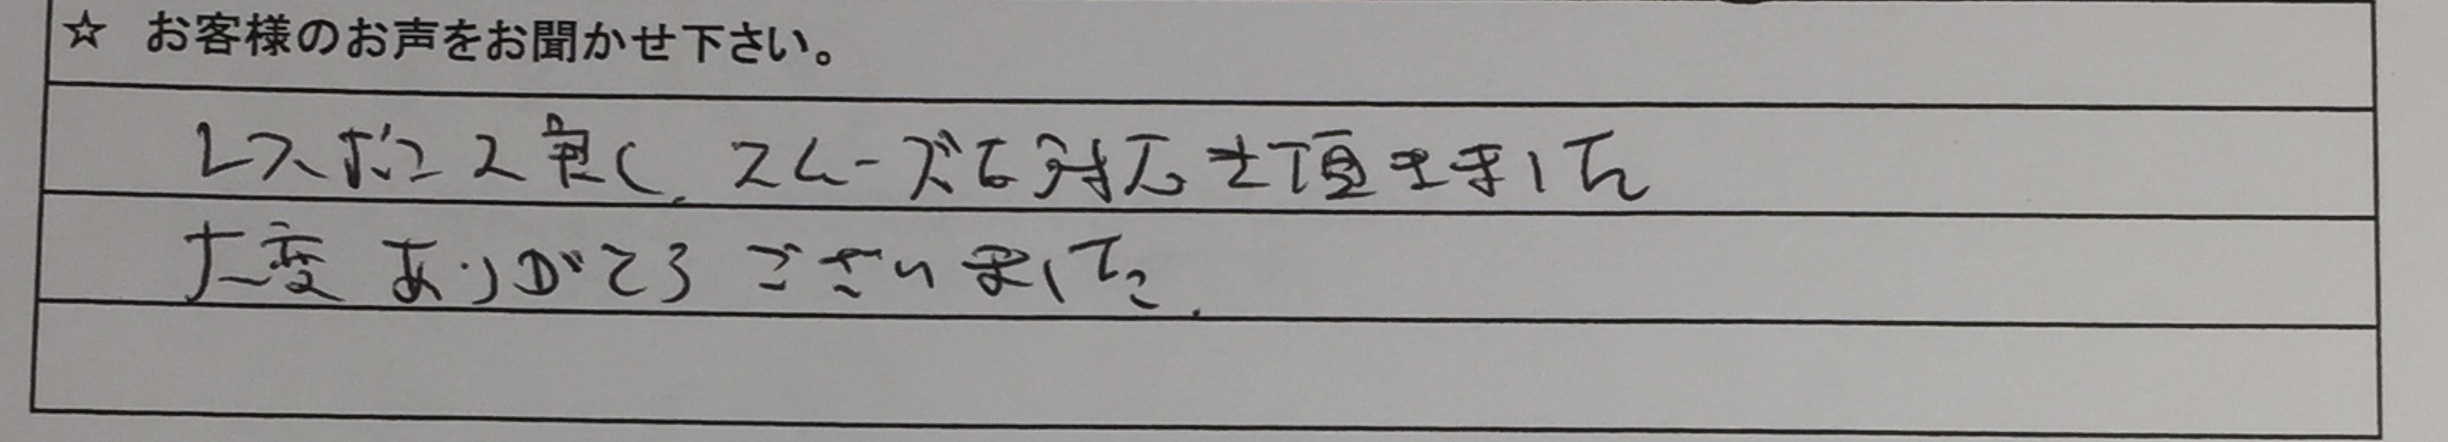 ☆ お客様のお声をお聞かせ下さい。
レスポンス良く、スムーズな対応を頂きました
大変ありがとうございました.